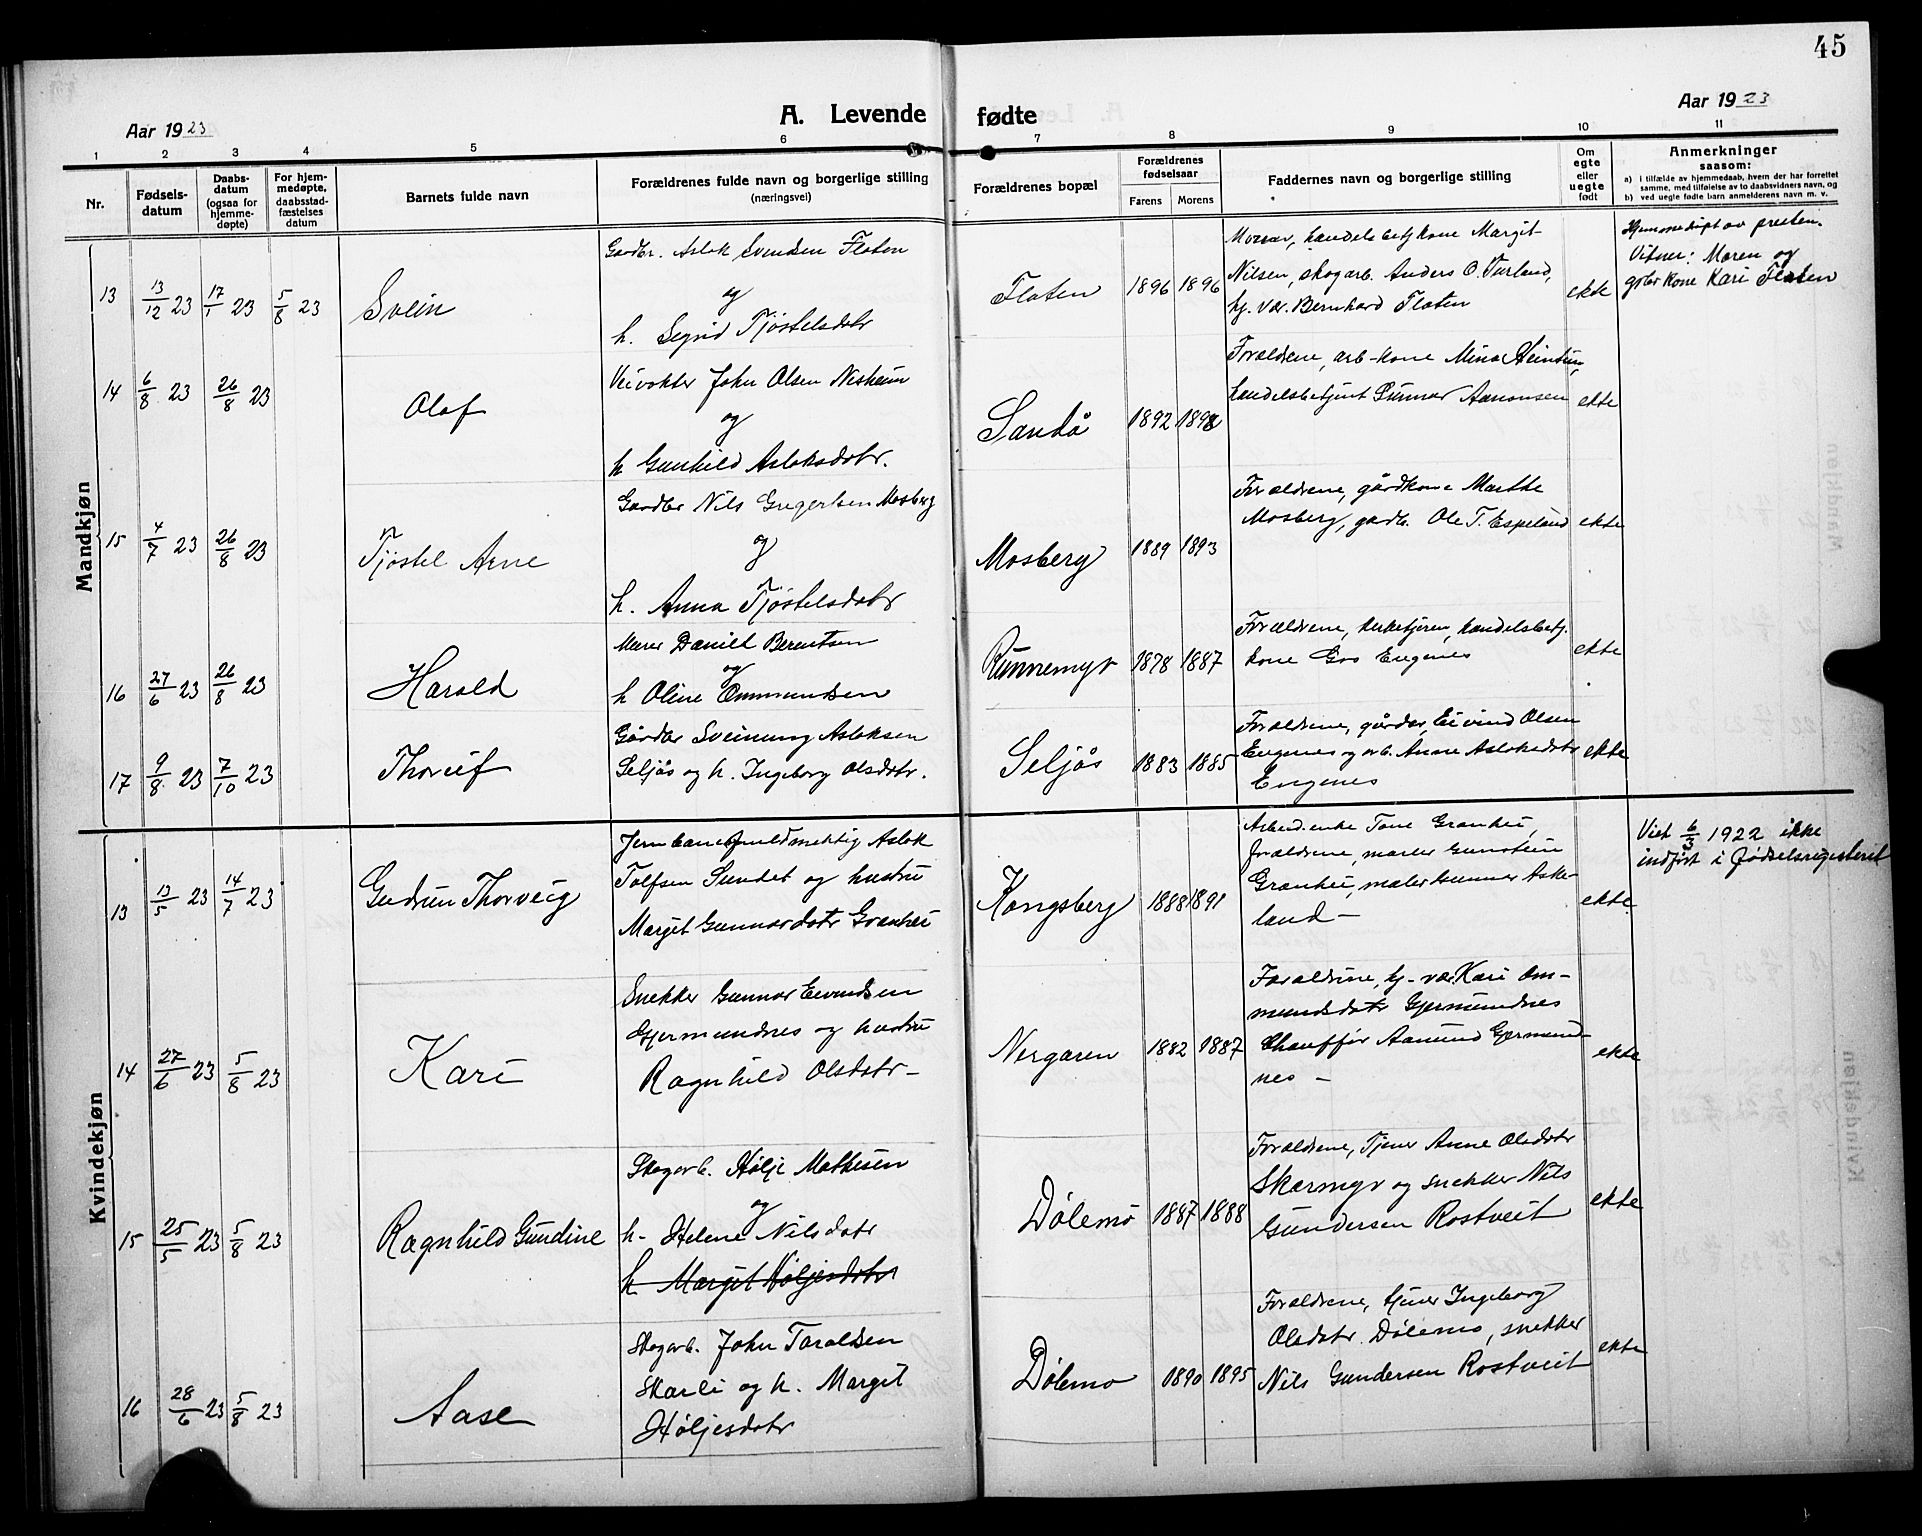 45
Aar 1923
A. Levende
fødte
Aar 1923
1 2 3 4 5 6 7 8 9 10 11
Nr.
Fødsels-
datum
Daabs-
datum
(ogsaa for
hjemme-
døpte)
For hjem-
medøpte,
daabsstad-
fæstelses
datum
Barnets fulde navn
Forældrenes fulde navn og borgerlige stilling
(næringsvei)
Forældrenes bopæl
Forældrenes
fødselsaar
Farens Morens
Faddernes navn og borgerlige stilling
Om
egte
eller
uegte
født
Anmerkninger
saasom:
a) i tilfælde av hjemmedaab, hvem der har forrettet
samme, med tilføielse av to daabsvidners navn, og
b) ved uegte fødte barn anmelderens navn m. v.
Mandkjøn
13 13/12 23 17/1 23 5/8 23
Svein
Gardbr. Aslak Svendsen Flaten
og
h. Signd Tjøstelsdatr
Flaten
1896 1896
Moren, handelsbetj kone Margit
Nilsen, skogarb. Anders O.
hj. vær. Bernhard Flaten
ekte
Hjemmedøpt av presten.
Vitner: Moren og
grbr kone Kari Flaten
14 6/8 23 26/8 23
Olaf
Veivokter John Olsen Nesheim
og
h Gunhild Aslaksdatr.
Sandå
1892
Forældrene, arb-kone Mina
handelsbetjent Gunnar Aanonsen
ekte
15 4/7 23 26/8 23
Tjøstel Arne
Gardbr Nils Gregersen Mosberg
og
h. Anna Tjøstelsdatr
Mosberg
1889 1893
Forældrene, gårdkone Marthe
Mosberg, gardb. Ole T. Espeland
ekte
16 27/6 23 26/8 23
Harald
Murer Daniel Berentsen
og
h Oline Ommundsen
Runnemyr
1878 1887
Forældrene, kirketjeren, handelsbetj.
kone Gro Engenes
ekte
17 9/8 23 7/10 23
Thorleif
Gårdbr Sveinung Aslaksen
Seljås og h. Ingeborg Olsdatr.
Seljås
1883 1885
Forældrene, gårdbr, Eivind Olsen
Engenes og arb. Anne Aslaksdatr
Engenes
ekte
Kvindekjøn
13 13/5 23 14/7 23
Gudrun Thorveig
Jernbanefuldmektig Aslak
Tolfsen Sundet og hustru
Margit Gunnarsdatr Granhei
Kongsberg
1888 1891
Arbeid.enke Tone Granhei,
forældrene, maler Gunstein
Granhei, maler Gunnar Aske-
land –
ekte.
Viet 6/3 1922 ikke
indført i fødselsregisteret
14 27/6 23 5/8 23
Kari
Snekker Gunnar Eivindsen
Gjermundnes og hustru
Ragnhild Olsdatr –
Nergaren
1882 1887
Forældrene, hj-vær. Kari Om-
mundsdatr Gjermundnes
Chauffør Aamund Gjermund-
nes –
ekte
15 25/5 23 5/8 23
Ragnhild Gundine
Skogarb. Hølje Mathisen
og
h- Helene Nilsdatr
h Margit Høljesdatr
Dølemo
1887 1888
Forældrene, Tjener Anne Olsdatr
Skarmyr og snekker Nils
Gundersen Rostveit
ekte
16 28/6 23 5/8 23
Aase
Skogarb. John Taraldsen
Skarli og h. Margit
Høljesdatr
Dølemo
1890 1895
Forældrene, tjener Ingeborg
Olsdatr Dølemo, snekker
Nils Gundersen Rostveit
ekte